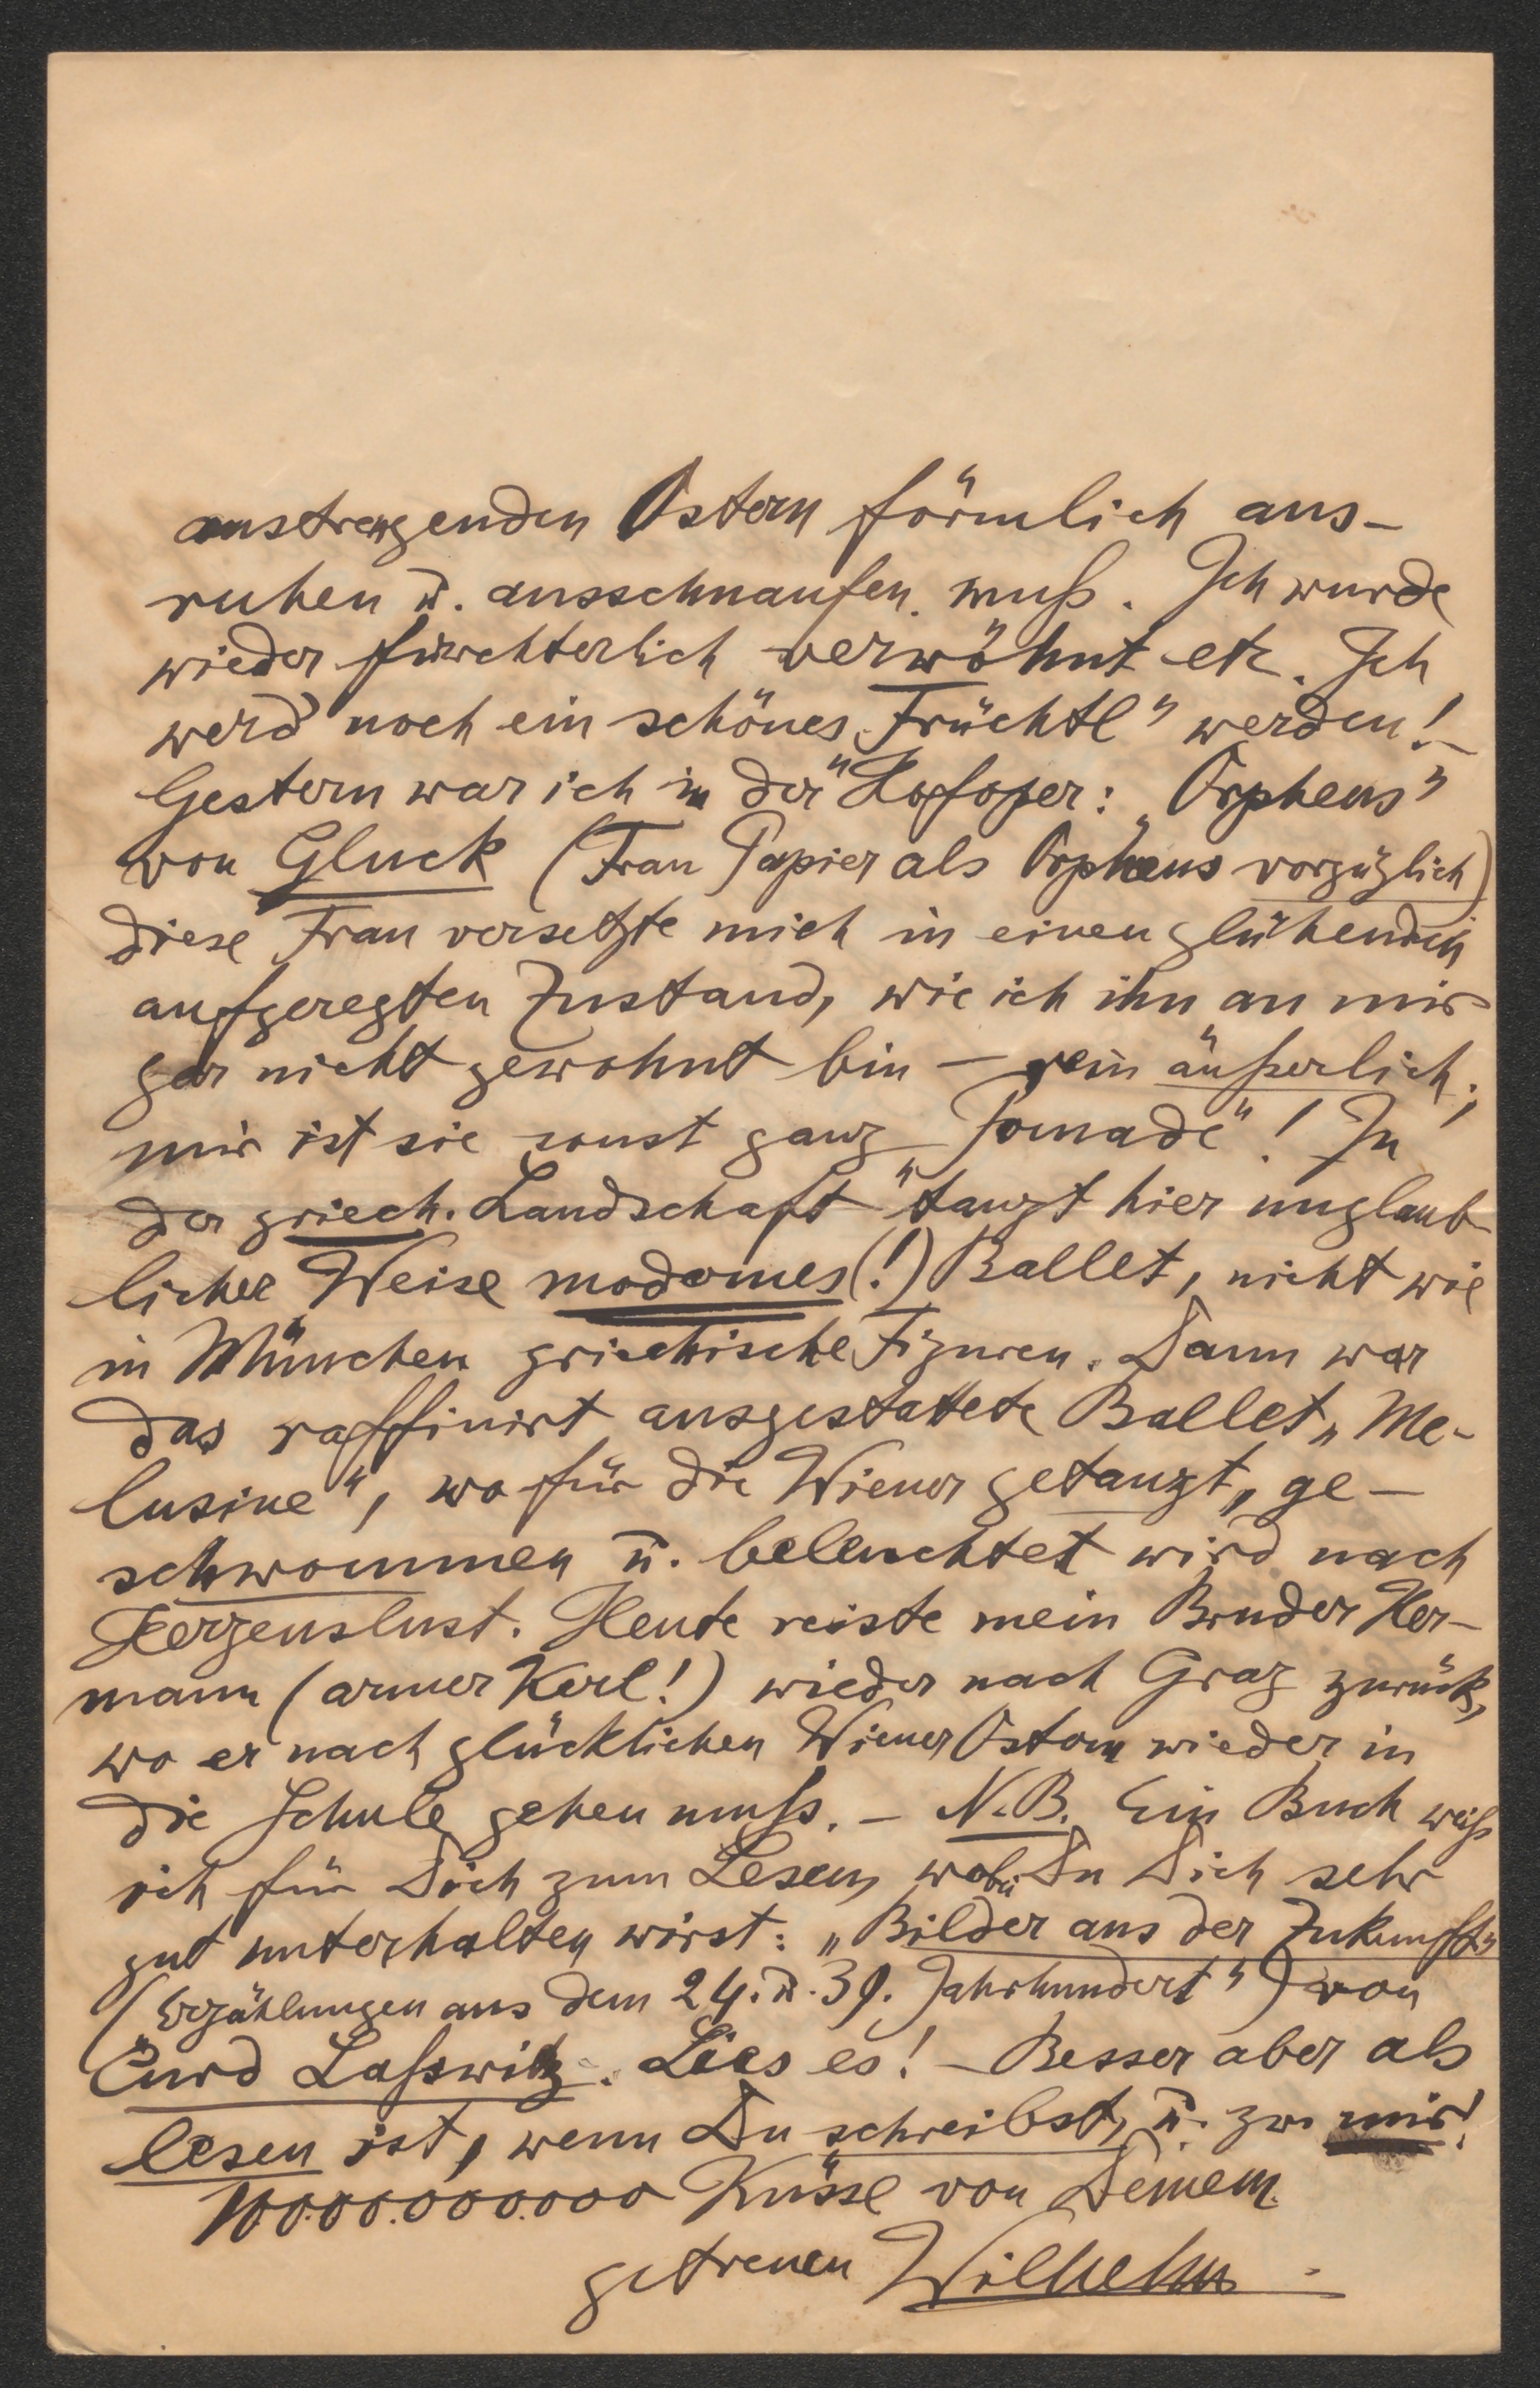 anstrengenden Ostern förmlich aus-
ruhen u. ausschnaufen muß. Ich wurde
wieder fürchterlich verwöhnt etc. Ich
werd' noch ein schönes „Früchtl" werden! –
Gestern war ich in der Hofoper: „Orpheus"
von Gluck (Frau Papier als Orpheus vorzüglich)
diese Frau versetzte mich in einen glühenden
aufgeregten Zustand, wie ich ihn an mir
gar nicht gewohnt bin – rein äußerlich;
mir ist sie sonst ganz „Pomade"! In
der griech. Landschaft tanzt hier unglaub-
licher Weise modernes (!) Ballet, nicht wie
in München griechische Figuren. Dann war
das raffinirt ausgestattete Ballet „Me-
lusine", wo für die Wiener getanzt, ge-
schwommen u. beleuchtet wird nach
Herzenslust. Heute reiste mein Bruder Her-
mann (armer Kerl!) wieder nach Graz zurück,
wo er nach glücklichen Wiener Ostern wieder in
die Schule gehen muss. – N.B. Ein Buch weiß
ich für Dich zum Lesen, wobei Du Dich sehr
gut unterhalten wirst: „Bilder aus der Zukunft"
(Erzählungen aus dem 24. u. 39. Jahrhundert") von
Curd Laßwitz. Lies es! – Besser aber als
lesen ist, wenn Du schreibst, u. zw. mir!
10000.000000 Küsse von Deinem
getreuen Wilhelm.